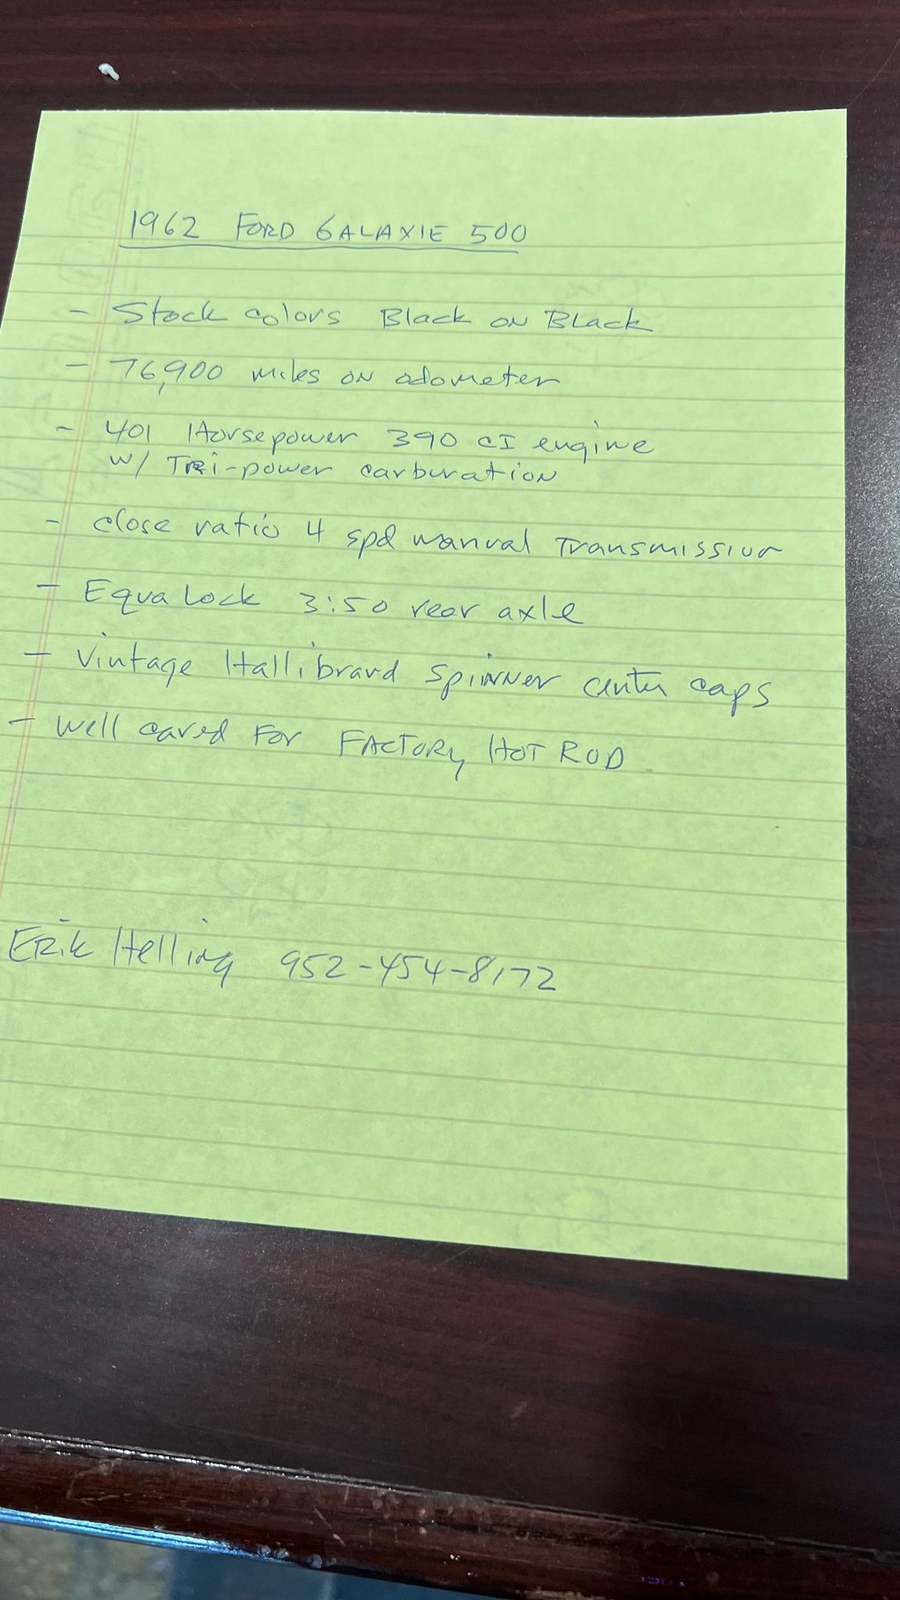 1962 FORD GALAXIE 500
- Stock colors Black on Black
- 76,900 miles on odometer
- 401 Horsepower 390 CI engine
w/ TRi-power carburation
- close ratio 4 spd manual Transmission
- Equa Lock 3:50 rear axle
- Vintage Hallibrard Spinner center caps
- well cared For FACTORY HOT ROD
Erik Helling 952-454-8172